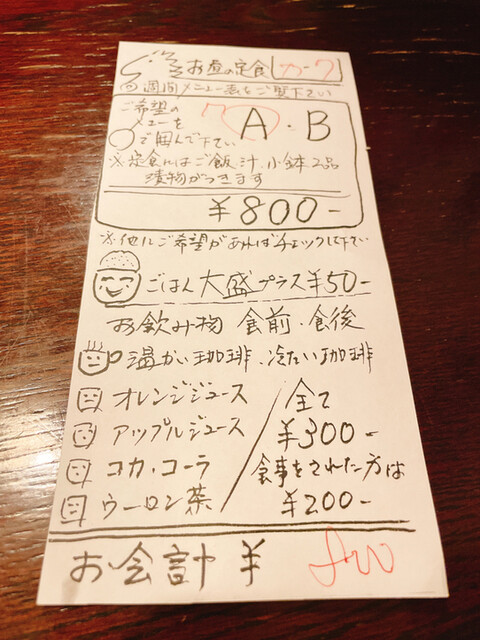 お昼の定食 カ-7
週間メニュー表をご覧下さい
ご希望の
メニューを
○で囲んで下さい
A・B
※定食にはご飯、汁、小鉢2品
漬物がつきます
¥800-
※他にご希望があればチェックして下さい
ごはん大盛プラス¥50-
お飲み物 食前・食後
温かい珈琲・冷たい珈琲
オレンジジュース
アップルジュース
コカ・コーラ
ウーロン茶
全て
¥300-
食事をされた方は
¥200-
お会計 ¥